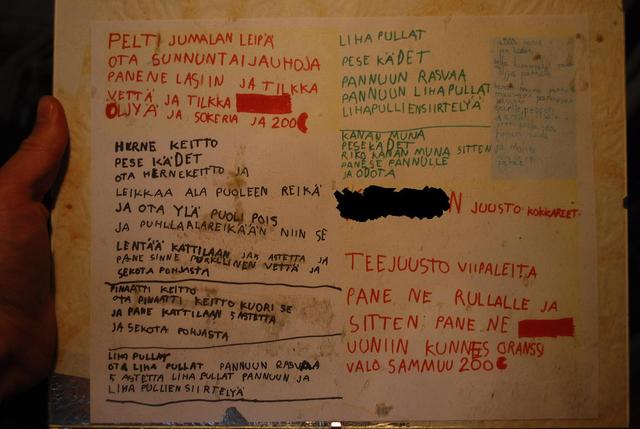 PELTI JUMALAN LEIPÄ
OTA SUNNUNTAIJAUHOJA
PANENE LASIIN JA TILKKA
VETTÄ JA TILKKA
ÖLJYÄ JA SOKERIA JA 200C
HERNE KEITTO
PESE KÄDET
OTA HERNEKEITTO JA
LEIKKAA ALA PUOLEEN REIKÄ
JA OTA YLÄ PUOLI POIS
JA PUHLLAALAREIKÄÄN NIIN SE
LENTÄÄ KATTILAAN JAK ASTETTA JA
PANE SINNE PURKLLINEN VETTÄ JA
SEKOTA POHJASTA
PINAATTI KEITTO
OTA PINAATTI KEITTO KUORI SE
JA PANE KATTILAAN 5 ASTETTA
JA SEKOTA POHJASTA
LIHA PULLAT
OTA LIHA PULLAT PANNUUN RASVAA
5 ASTETTA LIHA PULLAT PANNUUN JA
LIHA PULLIEN SIIRTELYÄ
LIHA PULLAT
PESE KÄDET
PANNUUN RASVAA
PANNUUN LIHA PULLAT
LIHAPULLIENSIIRTELYÄ
KANAN MUNA
PESE KÄDET
RIKO KANAN MUNA SITTEN
PANESE PANNULLE
JA ODOTA
N JUUSTO KOKKAREET
TEEJUUSTO VIIPALEITA
PANE NE RULLALLE JA
SITTEN PANE NE
UUNIIN KUNNES ORANSSI
VALO SAMMUU 200C